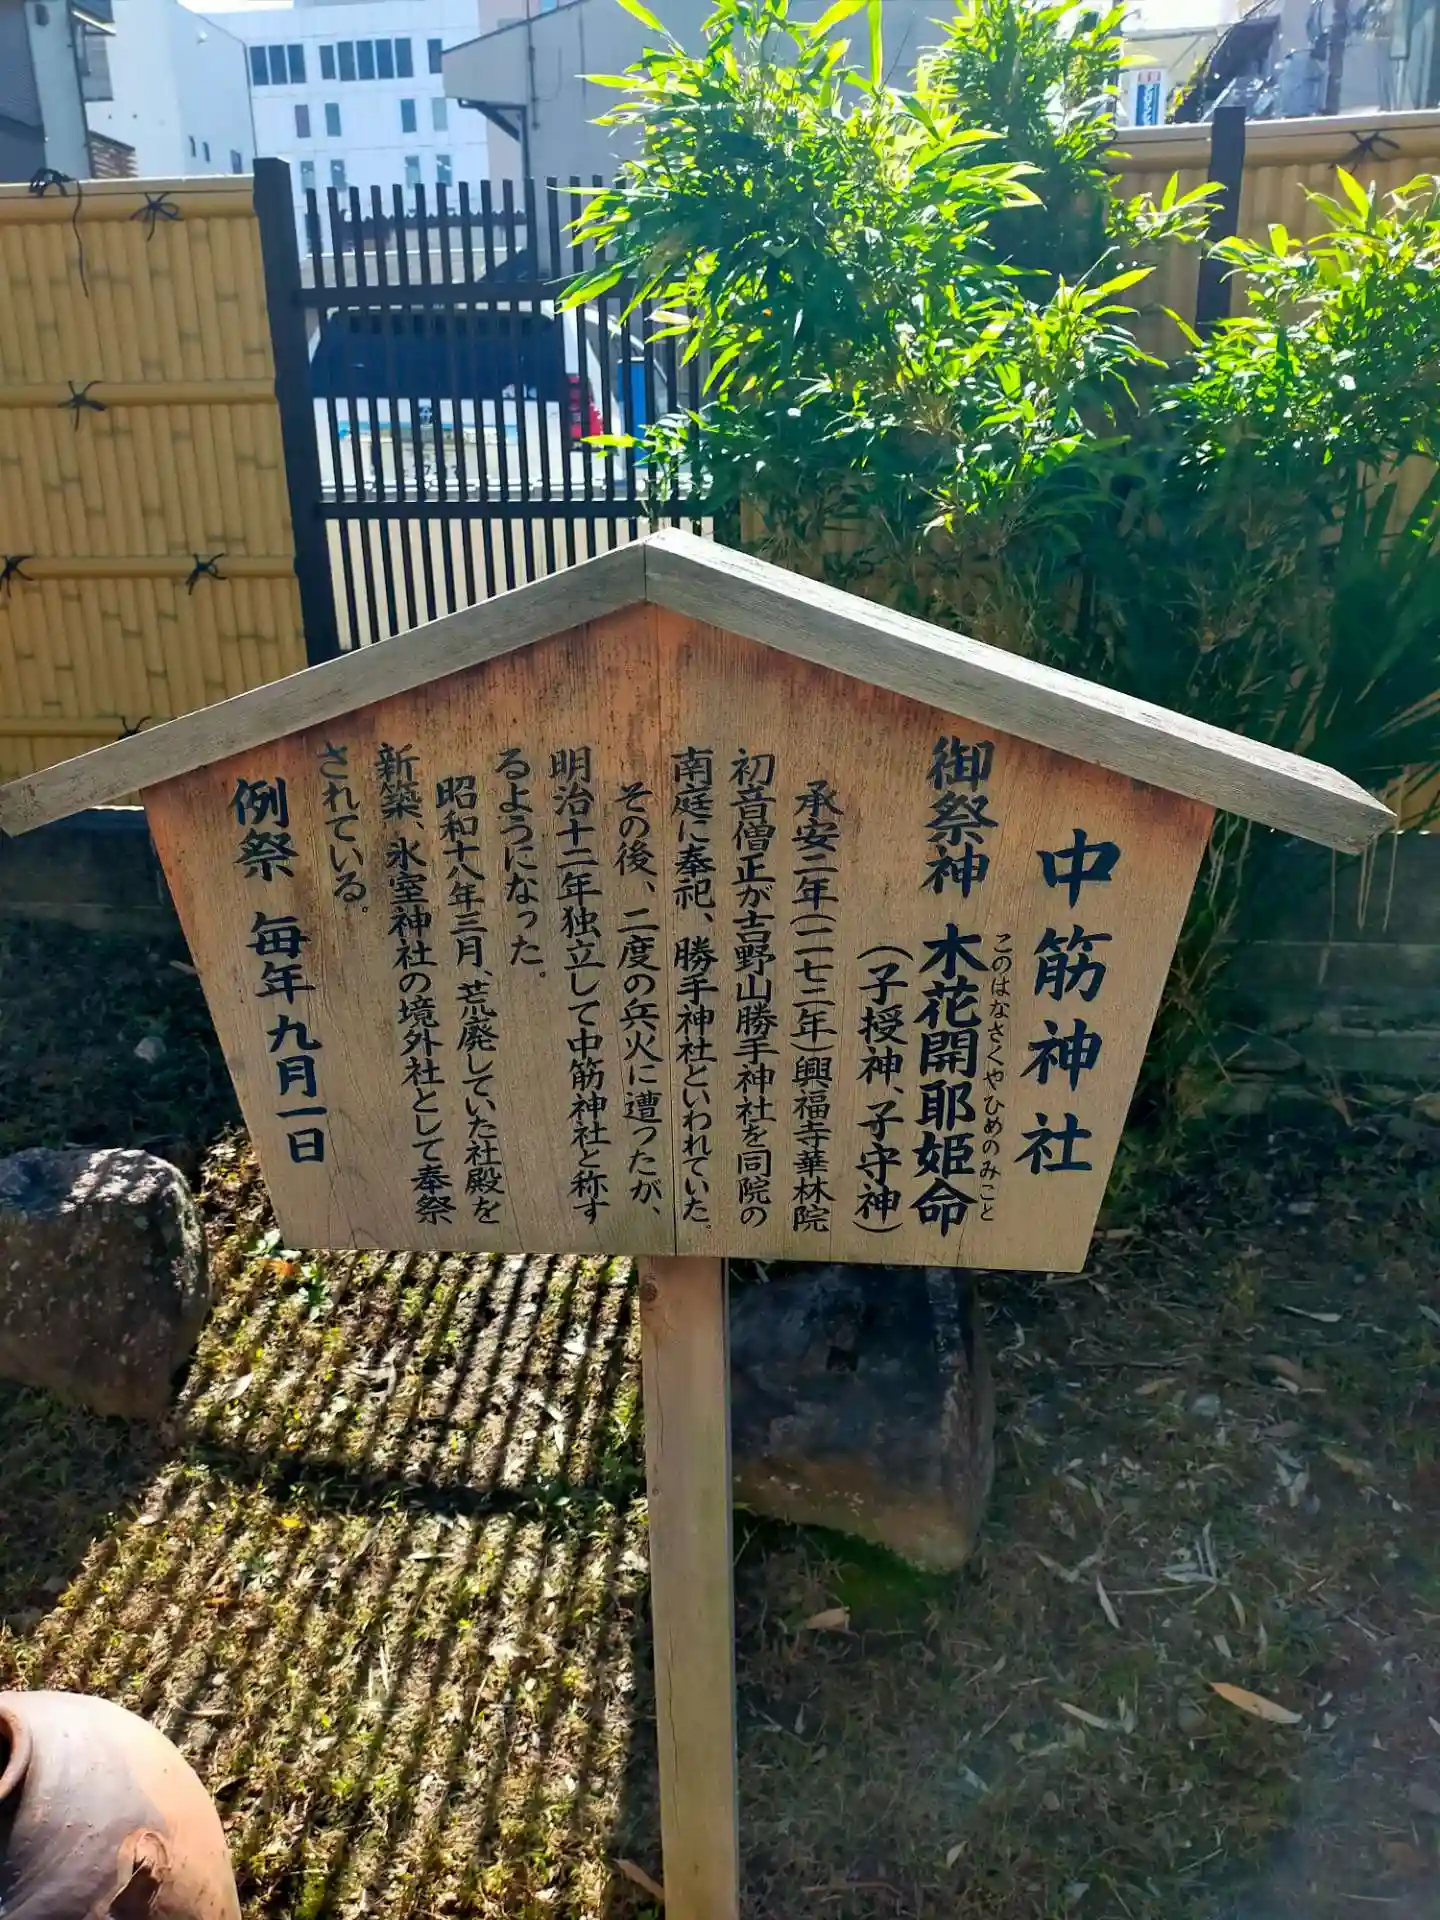 中筋神社
このはなさくやひめのみこと
御祭神 木花開耶姫命
(子授神、子守神)
承安二年(一一七二年)興福寺華林院
初音僧正が吉野山勝手神社を同院の
南庭に奉祀、勝手神社といわれていた。
その後、二度の兵火に遭ったが、
明治十二年独立して中筋神社と称す
るようになった。
昭和十八年三月、荒廃していた社殿を
新築、氷室神社の境外社として奉祭
されている。
例祭 毎年 九月一日